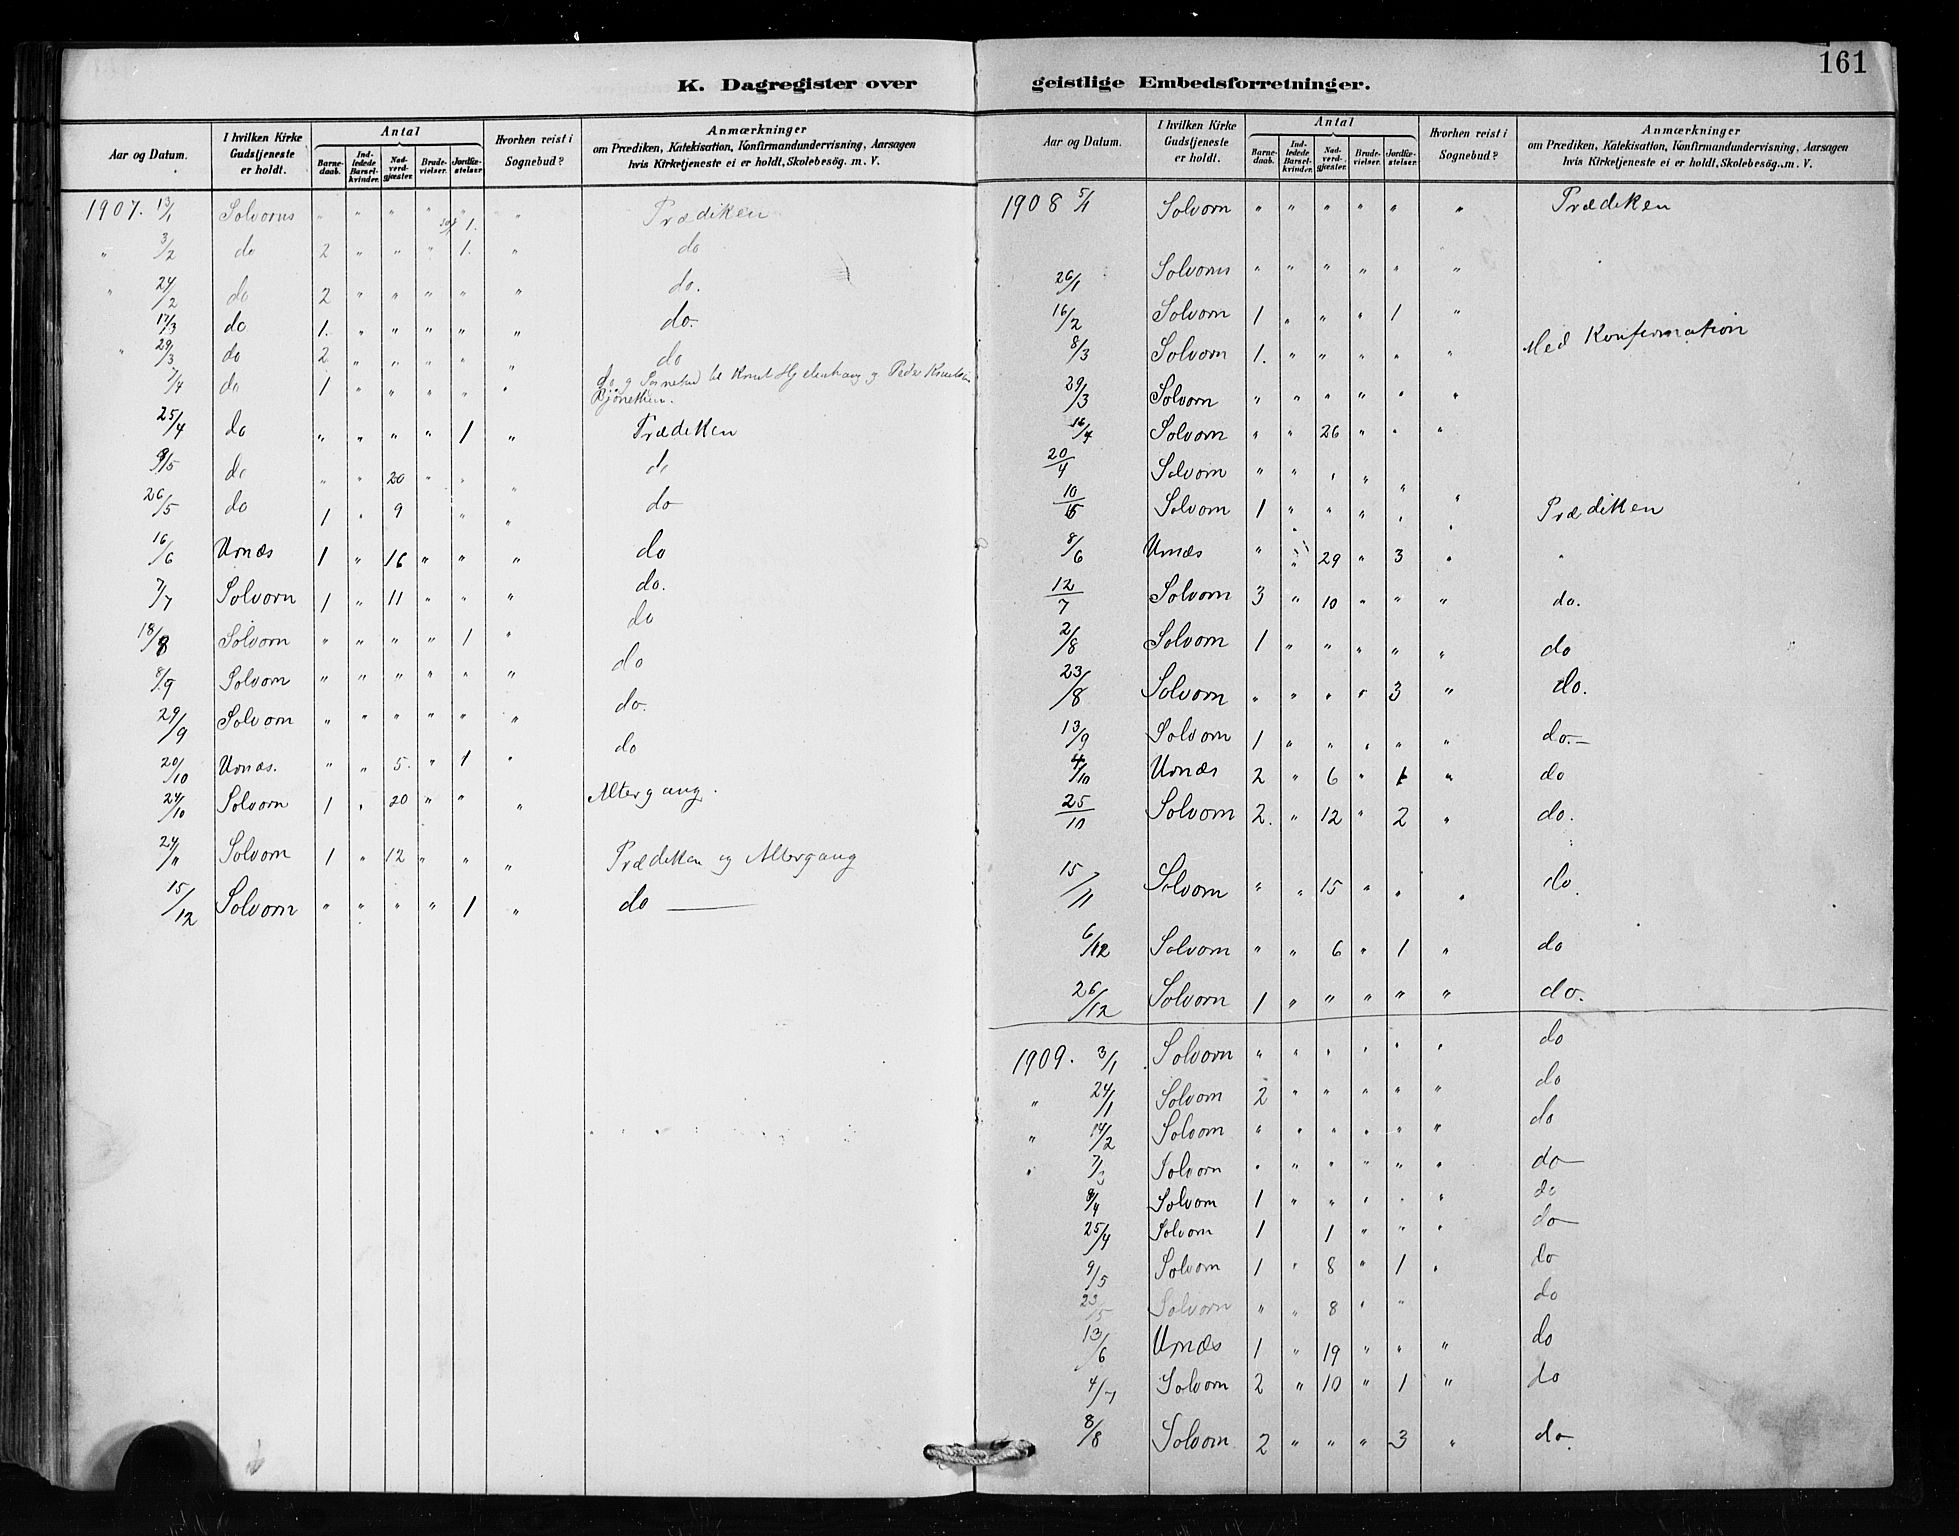 161
K. Dagregister over geistlige Embedsforretninger.
Aar og Datum. | I hvilken Kirke Gudstjeneste er holdt. | Antal | Barnedaab. | Indledede Barselkvinder. | Nadverdgjæster. | Brudevielser. | Jordfæstelser. | Hvorhen reist i Sognebud? | Anmærkninger om Prædiken, Katekisation, Konfirmandundervisning, Aarsagen hvis Kirketjeneste ei er holdt, Skolebesög. m. V.
1907. 13/1 Solvorns " " " " 1. " Prædiken
" 3/2 do 2 " " " 1. " do
" 24/2 do 2 " " " " " do.
17/3 do 1. " " " " " do.
" 29/3 do 2 " " " " " do
7/4 do 1 " " " " " do. og Sognebud til Knut og Peder
25/4 do " " " " 1 " Prædiken
9/5 do " " 20 " " " do
26/5 do 1 " 9 " " do
16/6 Urnæs 1 " 16 " " " do
7/7 Solvorn 1 " 11 " " " do.
18/8 Solvorn " " " " 1 " do
8/9 Solvorn " " " " " " do
29/9 Solvorn " " " " " " do.
20/10 Urnæs. " " 5. " 1 " do
24/10 Solvorn 1 " 20 " " " Altergang.
24/11 Solvorn 1 " 12 " " " Prædiken og Altergang
15/12 Solvorn " " " " 1 " do
Aar og Datum. | I hvilken Kirke Gudstjeneste er holdt. | Antal | Barnedaab. | Indledede Barselkvinder. | Nadverdgjæster. | Brudevielser. | Jordfæstelser. | Hvorhen reist i Sognebud? | Anmærkninger om Prædiken, Katekisation, Konfirmandundervisning, Aarsagen hvis Kirketjeneste ei er holdt, Skolebesög. m. V.
1908 5/1 Solvorn " " " " " " Prædiken
26/1 Solvorns " " " " " "
16/2 Solvorn 1 " " " 1 "
8/3 Solvorn 1. " " " " " Med Konfirmation
29/3 Solvorn " " " " " "
16/4 Solvorn " " 26 " " "
20/4 Solvorn " " " " " "
10/5 Solvorn 1 " " " " " Prædiken
8/6 Urnæs " " 29 " 3 " "
12/7 Solvorn 3 " 10 " " " do.
2/8 Solvorn 1 " " " " " do
23/8 Solvorn " " " " 3 " do.
13/9 Solvorn 1 " " " " " do.-
4/10 Urnæs 2 " 6 " 1 " do
25/10 Solvorn 2. " 12 " 2 " do.
15/11 Solvorn " " 15 " " " do.
6/12 Solvorn " " 6 " 1 " do
26/12 Solvorn 1 " " " " " do.
1909. 3/1 Solvorn " " " " " " do
" 24/1 Solvorn 2 " " " " " do
" 14/2 Solvorn " " " " " " do
" 7/3 Solvorn " " " " " " do
8/4 Solvorn 1 " " " " " do
25/4 Solvorn 1 1 " " " do
9/5 Solvorn 1 " 8 " 1 " do
23/5 Solvorn " " 8 " " do
13/6 Urnæs 1 " 19 " " " do
4/7 Solvorn 2 " 10 " 1 " do
8/8 Solvorn 2 " " " 3 " do.